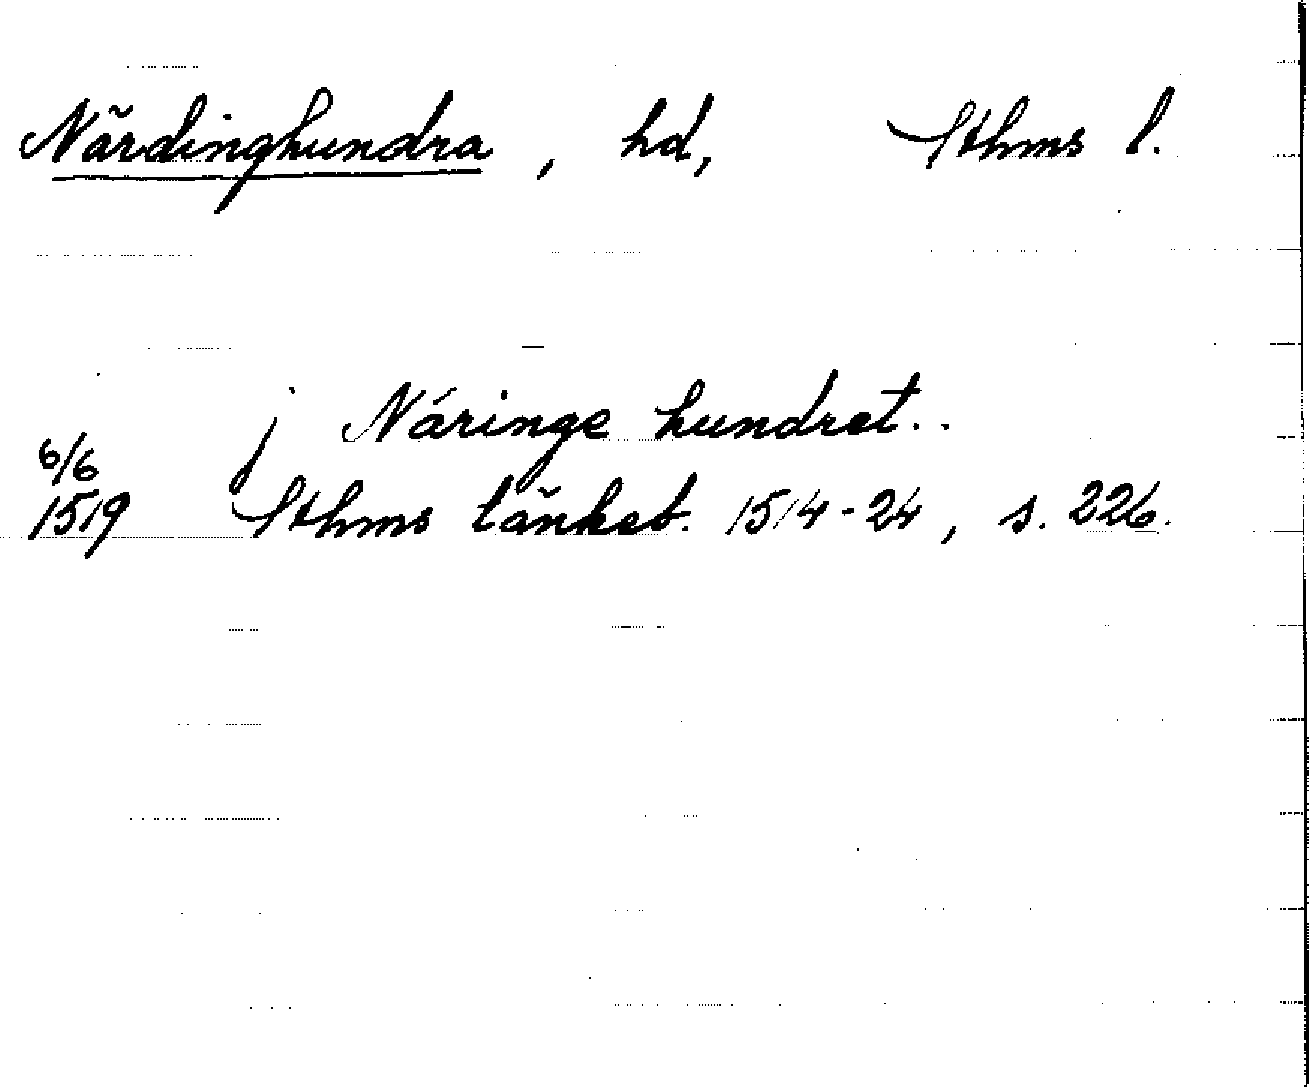 Närdinghundra, hd, Sthms l.
j Näringe hundret..
6/6
1519 Sthms tänkeb. 1514-24, s. 226.